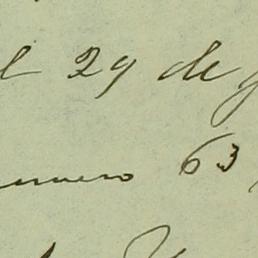 l 29 de
umero 63